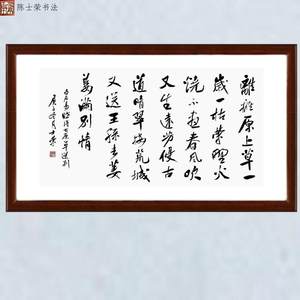 陈士荣书法
離離原上草一
歲一枯榮野火
燒不盡春風吹
又生遠芳侵古
道晴翠接荒城
又送王孫去萋
萋滿別情
白居易 原草送別
士荣